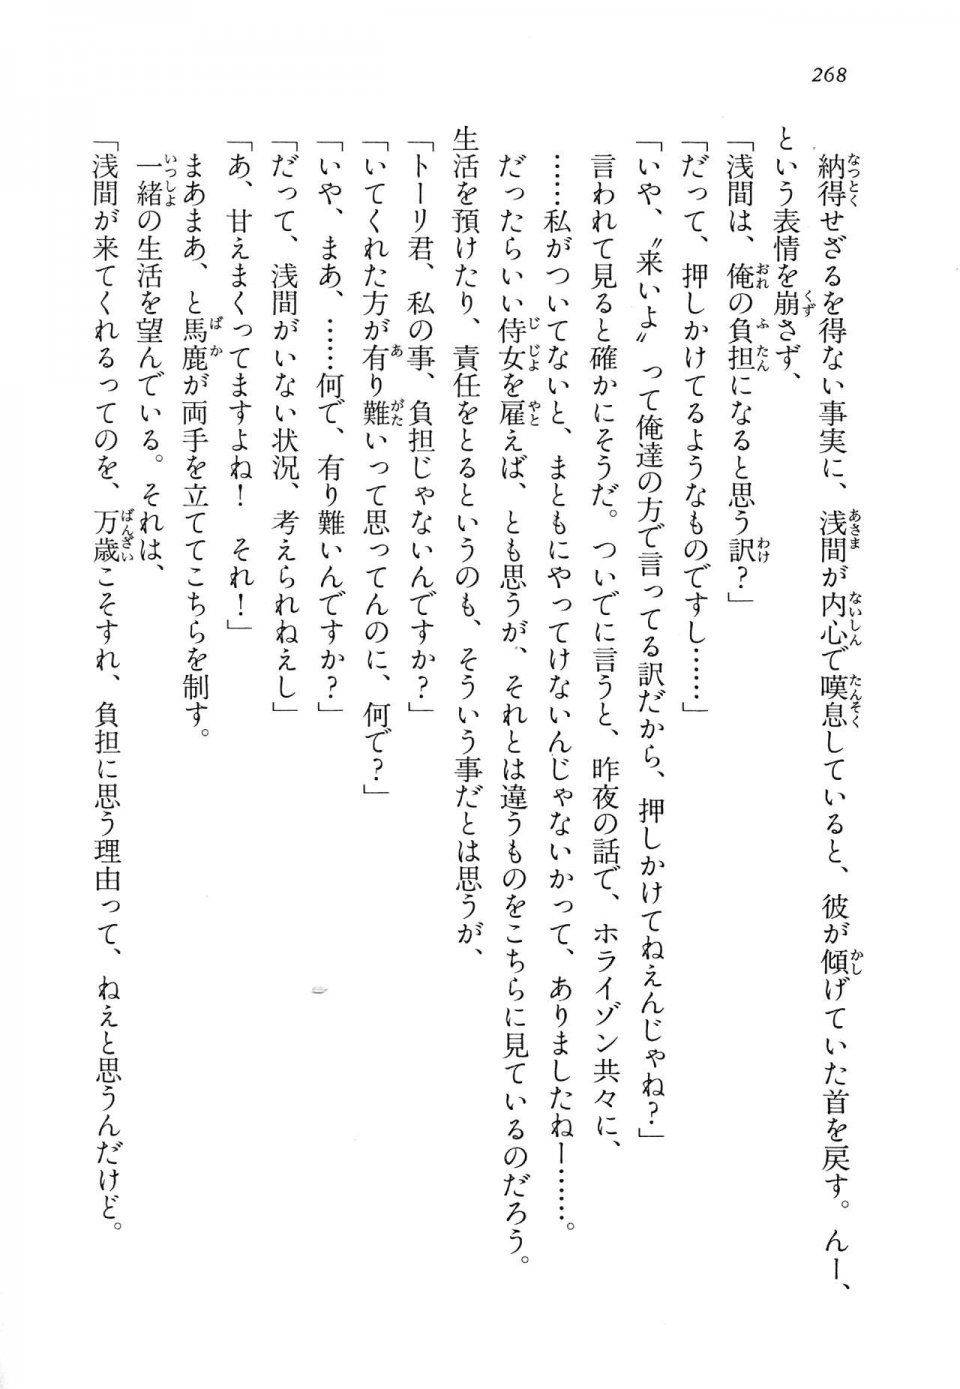 268
納得せざるを得ない事実に、浅間が内心で嘆息していると、彼が傾げていた首を戻す。んー、
という表情を崩さず、
「浅間は、俺の負担になると思う訳？」
「だって、押しかけてるようなものですし……」
「いや、〝来いよ〟って俺達の方で言ってる訳だから、押しかけてねえんじゃね？」
言われて見ると確かにそうだ。ついでに言うと、昨夜の話で、ホライゾン共々に、
……私がついてないと、まともにやってけないんじゃないかって、ありましたねー……。
だったらいい侍女を雇えば、とも思うが、それとは違うものをこちらに見ているのだろう。
生活を預けたり、責任をとるというのも、そういう事だとは思うが、
「トーリ君、私の事、負担じゃないんですか？」
「いてくれた方が有り難いって思ってんのに、何で？」
「いや、まあ、……何で、有り難いんですか？」
「だって、浅間がいない状況、考えられねえし」
「あ、甘えまくってますよね！　それ！」
まあまあ、と馬鹿が両手を立ててこちらを制す。
一緒の生活を望んでいる。それは、
「浅間が来てくれるってのを、万歳こそすれ、負担に思う理由って、ねえと思うんだけど。